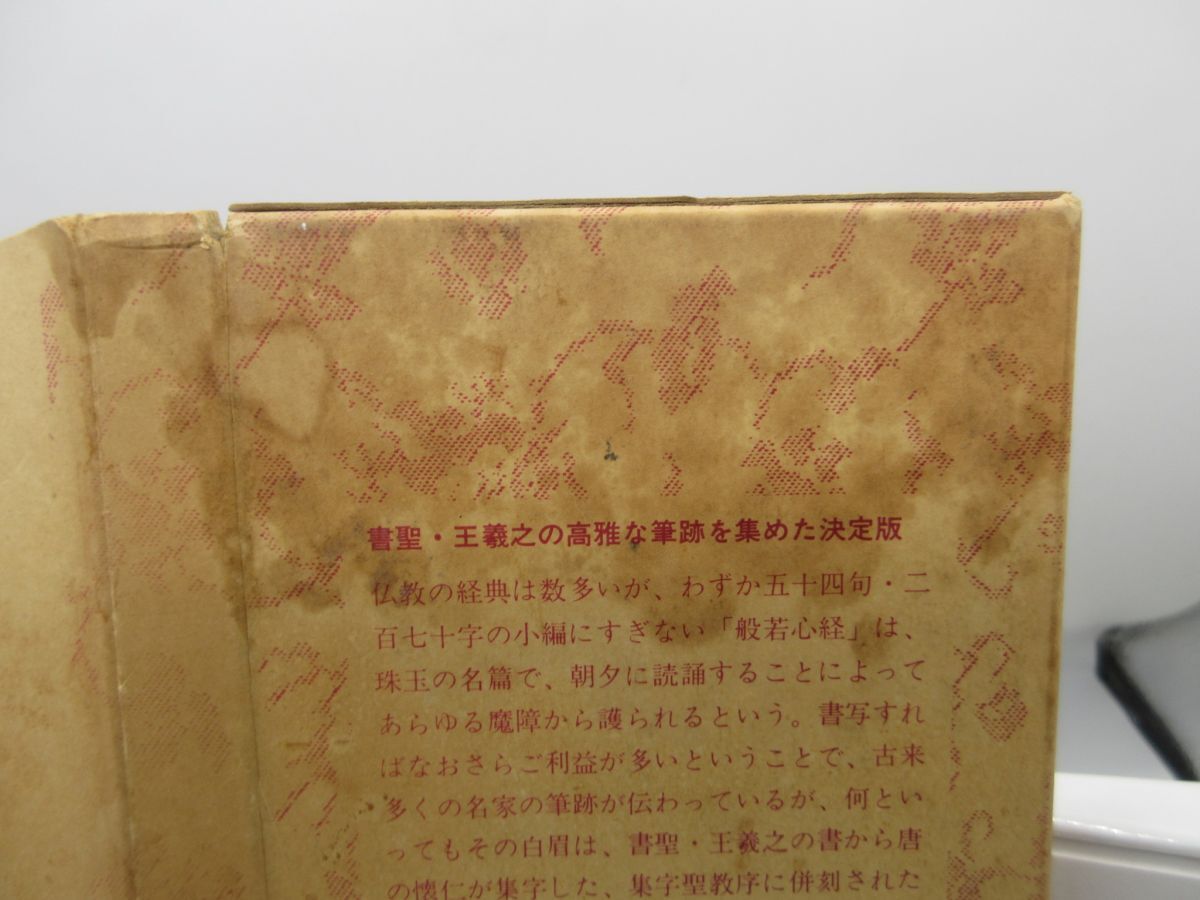 書聖・王羲之の高雅な筆跡を集めた決定版
仏教の経典は数多いが、わずか五十四句・二
百七十字の小編にすぎない「般若心経」は、
珠玉の名篇で、朝夕に読誦することによって
あらゆる魔障から護られるという。書写すれ
ばなおさらご利益が多いということで、古来
多くの名家の筆跡が伝わっているが、何とい
ってもその白眉は、書聖・王羲之の書から唐
の懐仁が集字した、集字聖教序に併刻された